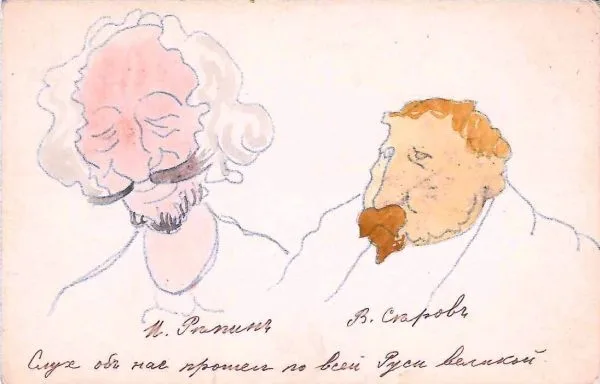 И. Рѣпинъ
В. Сѣровъ
Слух объ нас прошел по всей Руси великой.